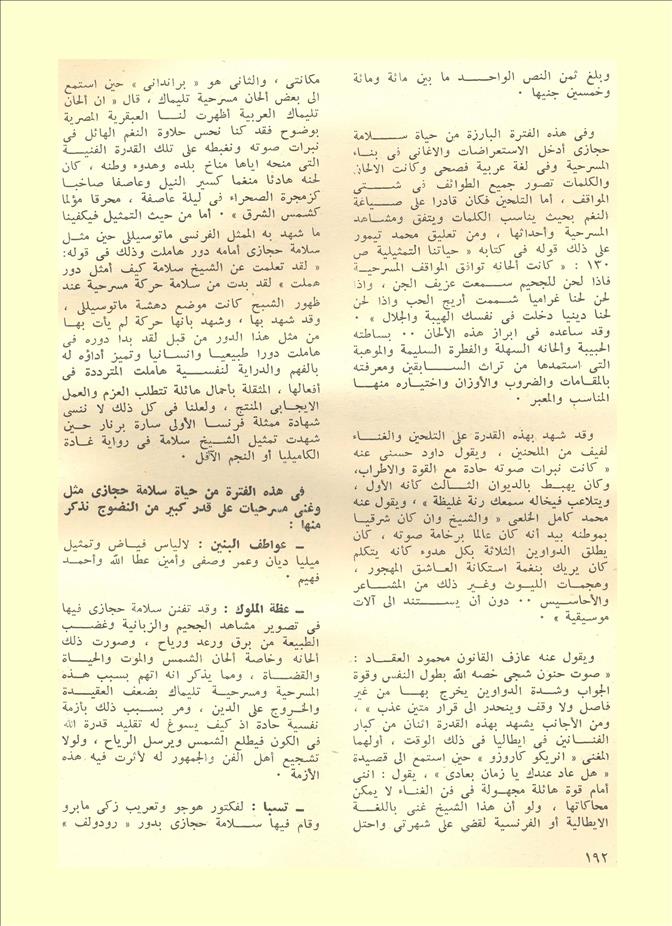 وبلغ ثمن النص الواحـــد ما بين مائة ومائة
وخمسين جنيها .
وفى هذه الفترة البارزة من حياة ســـلامة
حجازى أدخل الاستعراضات والاغانى فى بناء
المسرحية وفى لغة عربية فصحى وكانت الالحان
والكلمات تصور جميع الطوائف فى شـــتى
المواقف ، أما التلحين فكان قادرا على صـــياغة
النغم بحيث يناسب الكلمات ويتفق ومشـاهد
المسرحية وأحداثها ، ومن تعليق محمد تيمور
على ذلك قوله فى كتابه « حياتنا التمثيلية ص
١٣٠ : « كانت ألحانه توافق المواقف المسرحيـة
فاذا لحن للجحيم ســـمعت عزيف الجن ، واذا
لحن لحنا غراميا شـــممت أريج الحب واذا لحن
لحنا دينيا دخلت فى نفسك الهيبة والجلال » .
وقد ساعده فى ابراز هذه الألحان .. بساطته
الحبيبة وألحانه السهلة والفطرة السليمة والموهبة
التى استمدها من تراث الســـابقين ومعرفته
بالمقامات والضروب والأوزان واختياره منهــا
المناسب والمعبر .
وقد شهد بهذه القدرة على التلحين والغنـــاء
لفيف من الملحنين ، ويقول داود حسنى عنه
« كانت نبرات صوته حادة مع القوة والاطراب،
وكان يهبـط بالديوان الثـــالث كأنه الأول ،
ويتلاعب فيخاله سمعك رنة غليظة » ، ويقول عنه
محمد كامل الخلعى « والشيخ وان كان شرقيا
بموطنه بيد أنه كان عالما برخامة صوته ، كان
يطلق الدواوين الثلاثة بكل هدوء كأنه يتكلم
كان يريك بنغمة استكانة العـاشق المهجور ،
وهجمـات الليـوث وغـير ذلك من المشـــاعر
والأحاسيس .. دون أن يســـتند الى آلات
موسيقية » .
ويقول عنه عازف القانون محمود العقـاد :
« صوت حنون شجى خصه الله بطول النفس وقوة
الجواب وشـدة الدواوين يخرج بهــا من غير
فاصل ولا وقف وينحدر الى قرار متين عذب » ،
ومن الأجانب يشهد بهذه القدرة اثنان من كبار
الفنـــانين فى ايطاليا فى ذلك الوقت ، أولهما
المغنى « انريكو كاروزو » حين استمع الى قصيدة
« هل عاد عندك يا زمان بعادى » ، يقول : اننى
أمام قوة هائلة مجهـولة فى فن الغنـاء لا يمكن
محاكاتها ، ولو أن هذا الشيخ غنى باللغـــة
الايطالية أو الفرنسية لقضى على شهرتى واحتل
مكانتى ، والثانى هو « براندانى » حين استمع
الى بعض ألحان مسرحية تليماك ، قال « ان ألحان
تليماك العربية أظهرت لنـــا العبقرية المصرية
بوضوح فقد كنا نحس حلاوة النغم الهائل فى
نبرات صوته ونغبطه على تلك القدرة الفنيـــة
التى منحه اياها مناخ بلده وهدوء وطنه ، كان
لحنه هادئا منغما كسير النيل وعاصفا صاخبا
كزمجرة الصحراء فى ليلة عاصفة ، محرقا مؤلما
كشمس الشرق » . أما من حيث التمثيل فيكفينا
ما شهد به الممثل الفرنسى ماتوسيللى حين مثـل
سلامة حجازى أمامه دور هاملت وذلك فى قوله:
« لقد تعلمت عن الشيخ سلامة كيف أمثل دور
هملت » لقد بدت من سلامة حركة مسرحية عند
ظهور الشبح كانت موضع دهشة ماتوسيللى ،
وقد شهد بها ، وشهد بانها حركة لم يأت بهـا
من مثل هذا الدور من قبل لقد بدا دوره فى
هاملت دورا طبيعيـا وانسـانيا وتميز أداؤه له
بالفهم والدراية لنفســـية هاملت المترددة فى
أفعالها ، المثقلة بأحمال هائلة تتطلب العزم والعمل
الايجابى المنتج ، ولعلنا فى كل ذلك لا ننسى
شهادة ممثلة فرنسـا الأولى سارة برنار حـين
شهدت تمثيل الشـيخ سلامة فى رواية غـادة
الكاميليا أو النجم الآفل .
فى هذه الفترة من حياة سلامة حجازى مثل
وغنى مسرحيات على قدر كبير من النضوج نذكر
منها :
ـ عواطف البنين : لالياس فيـاض وتمثيل
ميليا ديان وعمر وصفى وأمين عطا الله وأحمـد
فهيم .
ـ عظة الملوك : وقد تفنن سلامة حجازى فيها
فى تصوير مشاهد الجحيم والزبانية وغضـب
الطبيعة من برق ورعد ورياح ، وصورت ذلك
ألحانه وخاصة ألحان الشمس والموت والحيـاة
والقضـاة ، ومما يذكر انه اتهم بسبب هـذه
المسرحية ومسرحيـة تليماك بضعف العقيـدة
والخـروج على الدين ، ومر بسـبب ذلك بأزمة
نفسية حادة اذ كيف يسوغ له تقليد قدرة الله
فى الكون فيطلع الشمس ويرسل الرياح ، ولولا
تشجيع أهل الفن والجمهور له لأثرت فيه هذه
الأزمة .
ـ تسبا : لفكتور هوجو وتعريب زكى مابرو
وقام فيها ســـلامة حجازى بدور « رودولف »
١٩٢